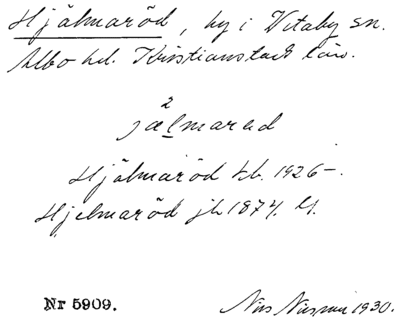 Hjälmaröd, by i Vitaby sn.
Albo hd. Kristianstad län.
2
jælmarad
Hjälmaröd tb. 1926–.
Hjelmaröd jb 1874.
Nr 5909.
Nils 1930.